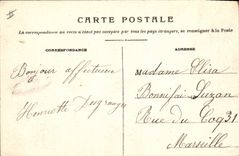 CARTE POSTALE
La correspondance au recto n'étant pas acceptée par tous les pays étrangers, se renseigner à la Poste
CORRESPONDANCE
ADRESSE
Bonjour affectueux
Henriette
Madame Elisa
Bonnifai Luzan
Rue du Coq 31
Marseille